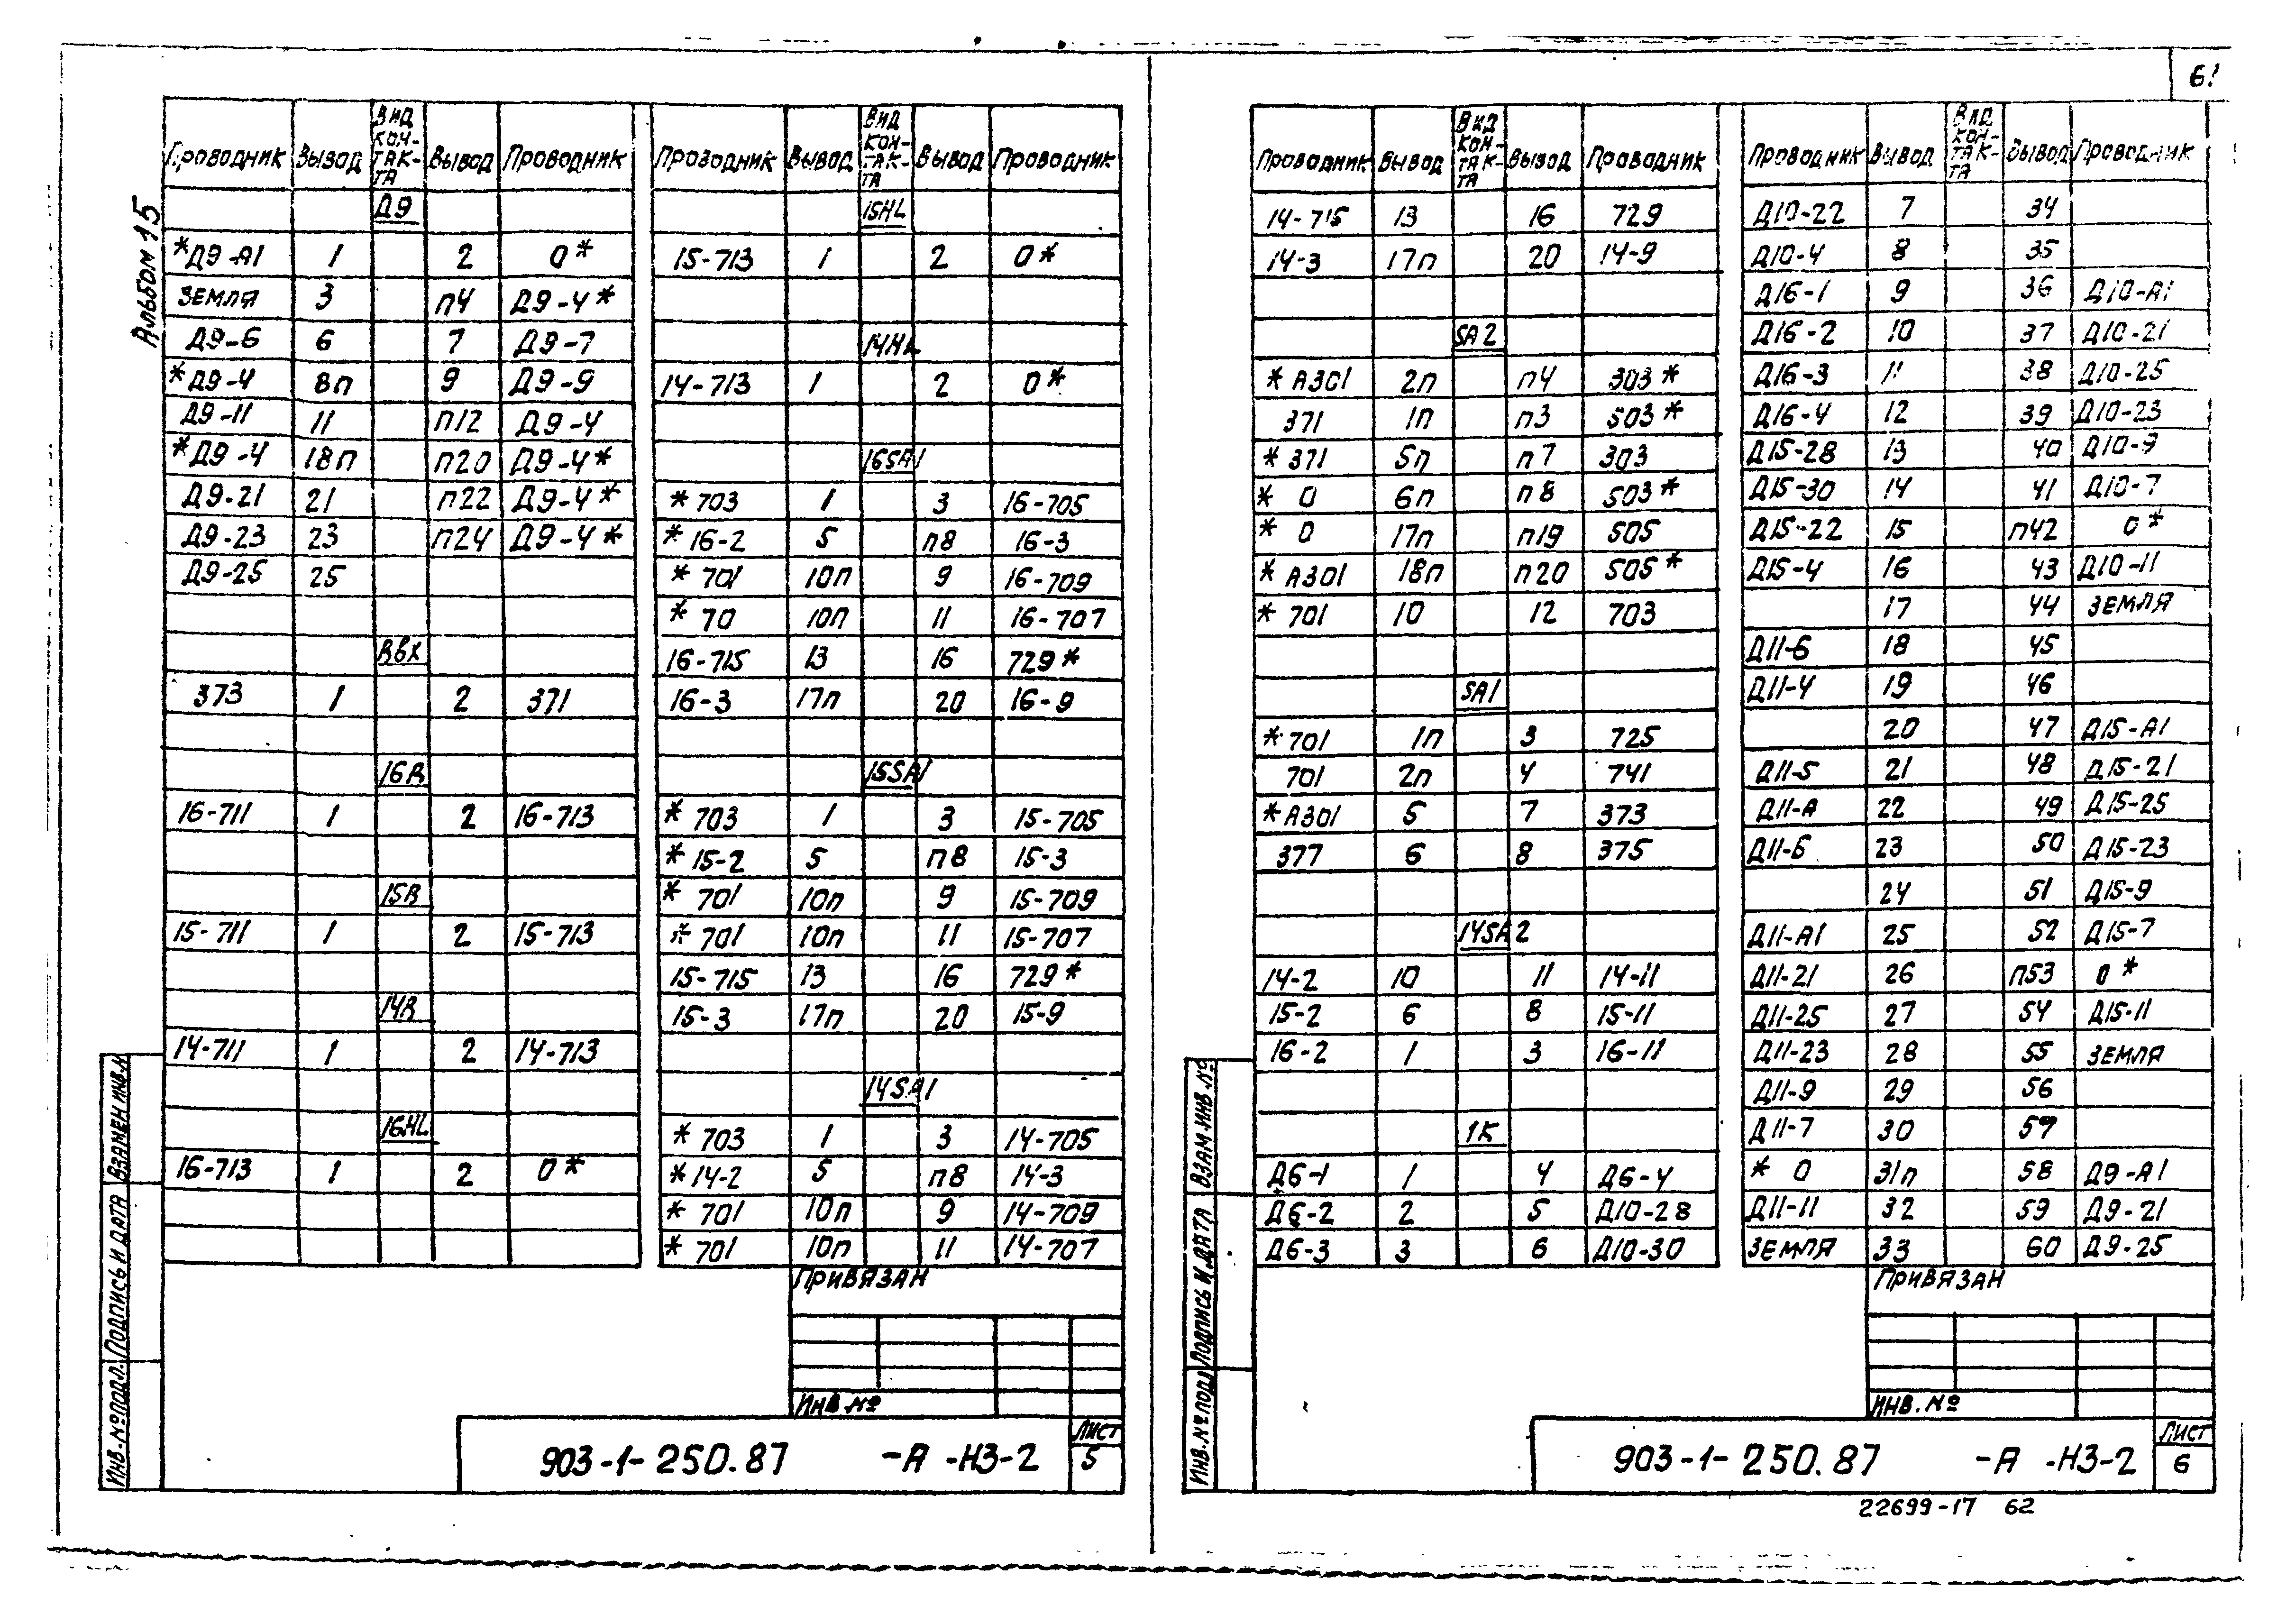 61
Альбом 15
Проводник Вывод Вид кон-такта Вывод Проводник
Д9
*Д9-А1 1 2 0*
Земля 3 п4 Д9-4*
Д9-6 6 7 Д9-7
*Д9-4 8п 9 Д9-9
Д9-11 11 п12 Д9-4
*Д9-4 18п п20 Д9-4*
Д9-21 21 п22 Д9-4*
Д9-23 23 п24 Д9-4*
Д9-25 25
373 1 2 371
16R
16-711 1 2 16-713
15R
15-711 1 2 15-713
14R
14-711 1 2 14-713
16HL
16-713 1 2 0*
Проводник Вывод Вид кон-так-та Вывод Проводник
15HL
15-713 1 2 0*
14HL
14-713 1 2 0*
16SA1
*703 1 3 16-705
*16-2 5 п8 16-3
*701 10п 9 16-709
*70 10п 11 16-707
16-715 13 16 729*
16-3 17п 20 16-9
15SA1
*703 1 3 15-705
*15-2 5 п8 15-3
*701 10п 9 15-709
*701 10п 11 15-707
15-715 13 16 729*
15-3 17п 20 15-9
14SA1
*703 1 3 14-705
*14-2 5 п8 14-3
*701 10п 9 14-709
*701 10п 11 14-707
Привязан
Инв.№
903-1-250.87 -А -НЗ-2
Лист
5
Инв.№подл. Подпись и дата Взамен инв.№
Проводник Вывод Вид кон-так-та Вывод Проводник
14-715 13 16 729
14-3 17п 20 14-9
SA2
*А301 2п п4 303*
371 1п п3 503*
*371 5п п7 303
*0 6п п8 503*
*0 17п п19 505
*А301 18п п20 505*
*701 10 12 703
SA1
*701 1п 3 725
701 2п 4 741
*А301 5 7 373
377 6 8 375
14SA2
14-2 10 11 14-11
15-2 6 8 15-11
16-2 1 3 16-11
1К
Д6-1 1 4 Д6-4
Д6-2 2 5 Д10-28
Д6-3 3 6 Д10-30
Проводник Вывод Вид кон-так-та Вывод Проводник
Д10-22 7 34
Д10-4 8 35
Д16-1 9 36 Д10-А1
Д16-2 10 37 Д10-21
Д16-3 11 38 Д10-25
Д16-4 12 39 Д10-23
Д15-28 13 40 Д10-9
Д15-30 14 41 Д10-7
Д15-22 15 п42 0*
Д15-4 16 43 Д10-11
17 44 Земля
Д11-6 18 45
Д11-4 19 46
20 47 Д15-А1
Д11-5 21 48 Д15-21
Д11-А 22 49 Д15-25
Д11-6 23 50 Д15-23
24 51 Д15-9
Д11-А1 25 52 Д15-7
Д11-21 26 п53 0*
Д11-25 27 54 Д15-11
Д11-23 28 55 Земля
Д11-9 29 56
Д11-7 30 59
*0 31п 58 Д9-А1
Д11-11 32 59 Д9-21
Земля 33 60 Д9-25
Привязан
Инв.№
903-1-250.87 -А -НЗ-2
Лист
6
Инв.№подл Подпись и дата Взам.инв.№
22699-17 62